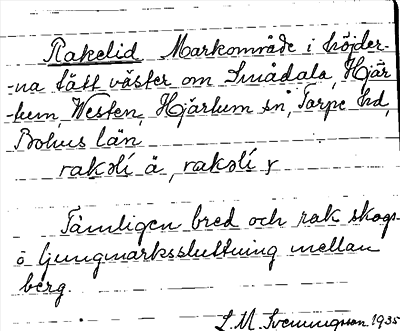 Rakelid Markområde i höjder-
-na tätt väster om Smådala, Hjär
-tum, Westen, Hjärtum sn, Torpe hd,
Bohus län
rakəlí å, rakəlí
Tämligen bred och rak skogs-
o ljungmarkssluttning mellan
berg.
L. M. Svenungsson 1935